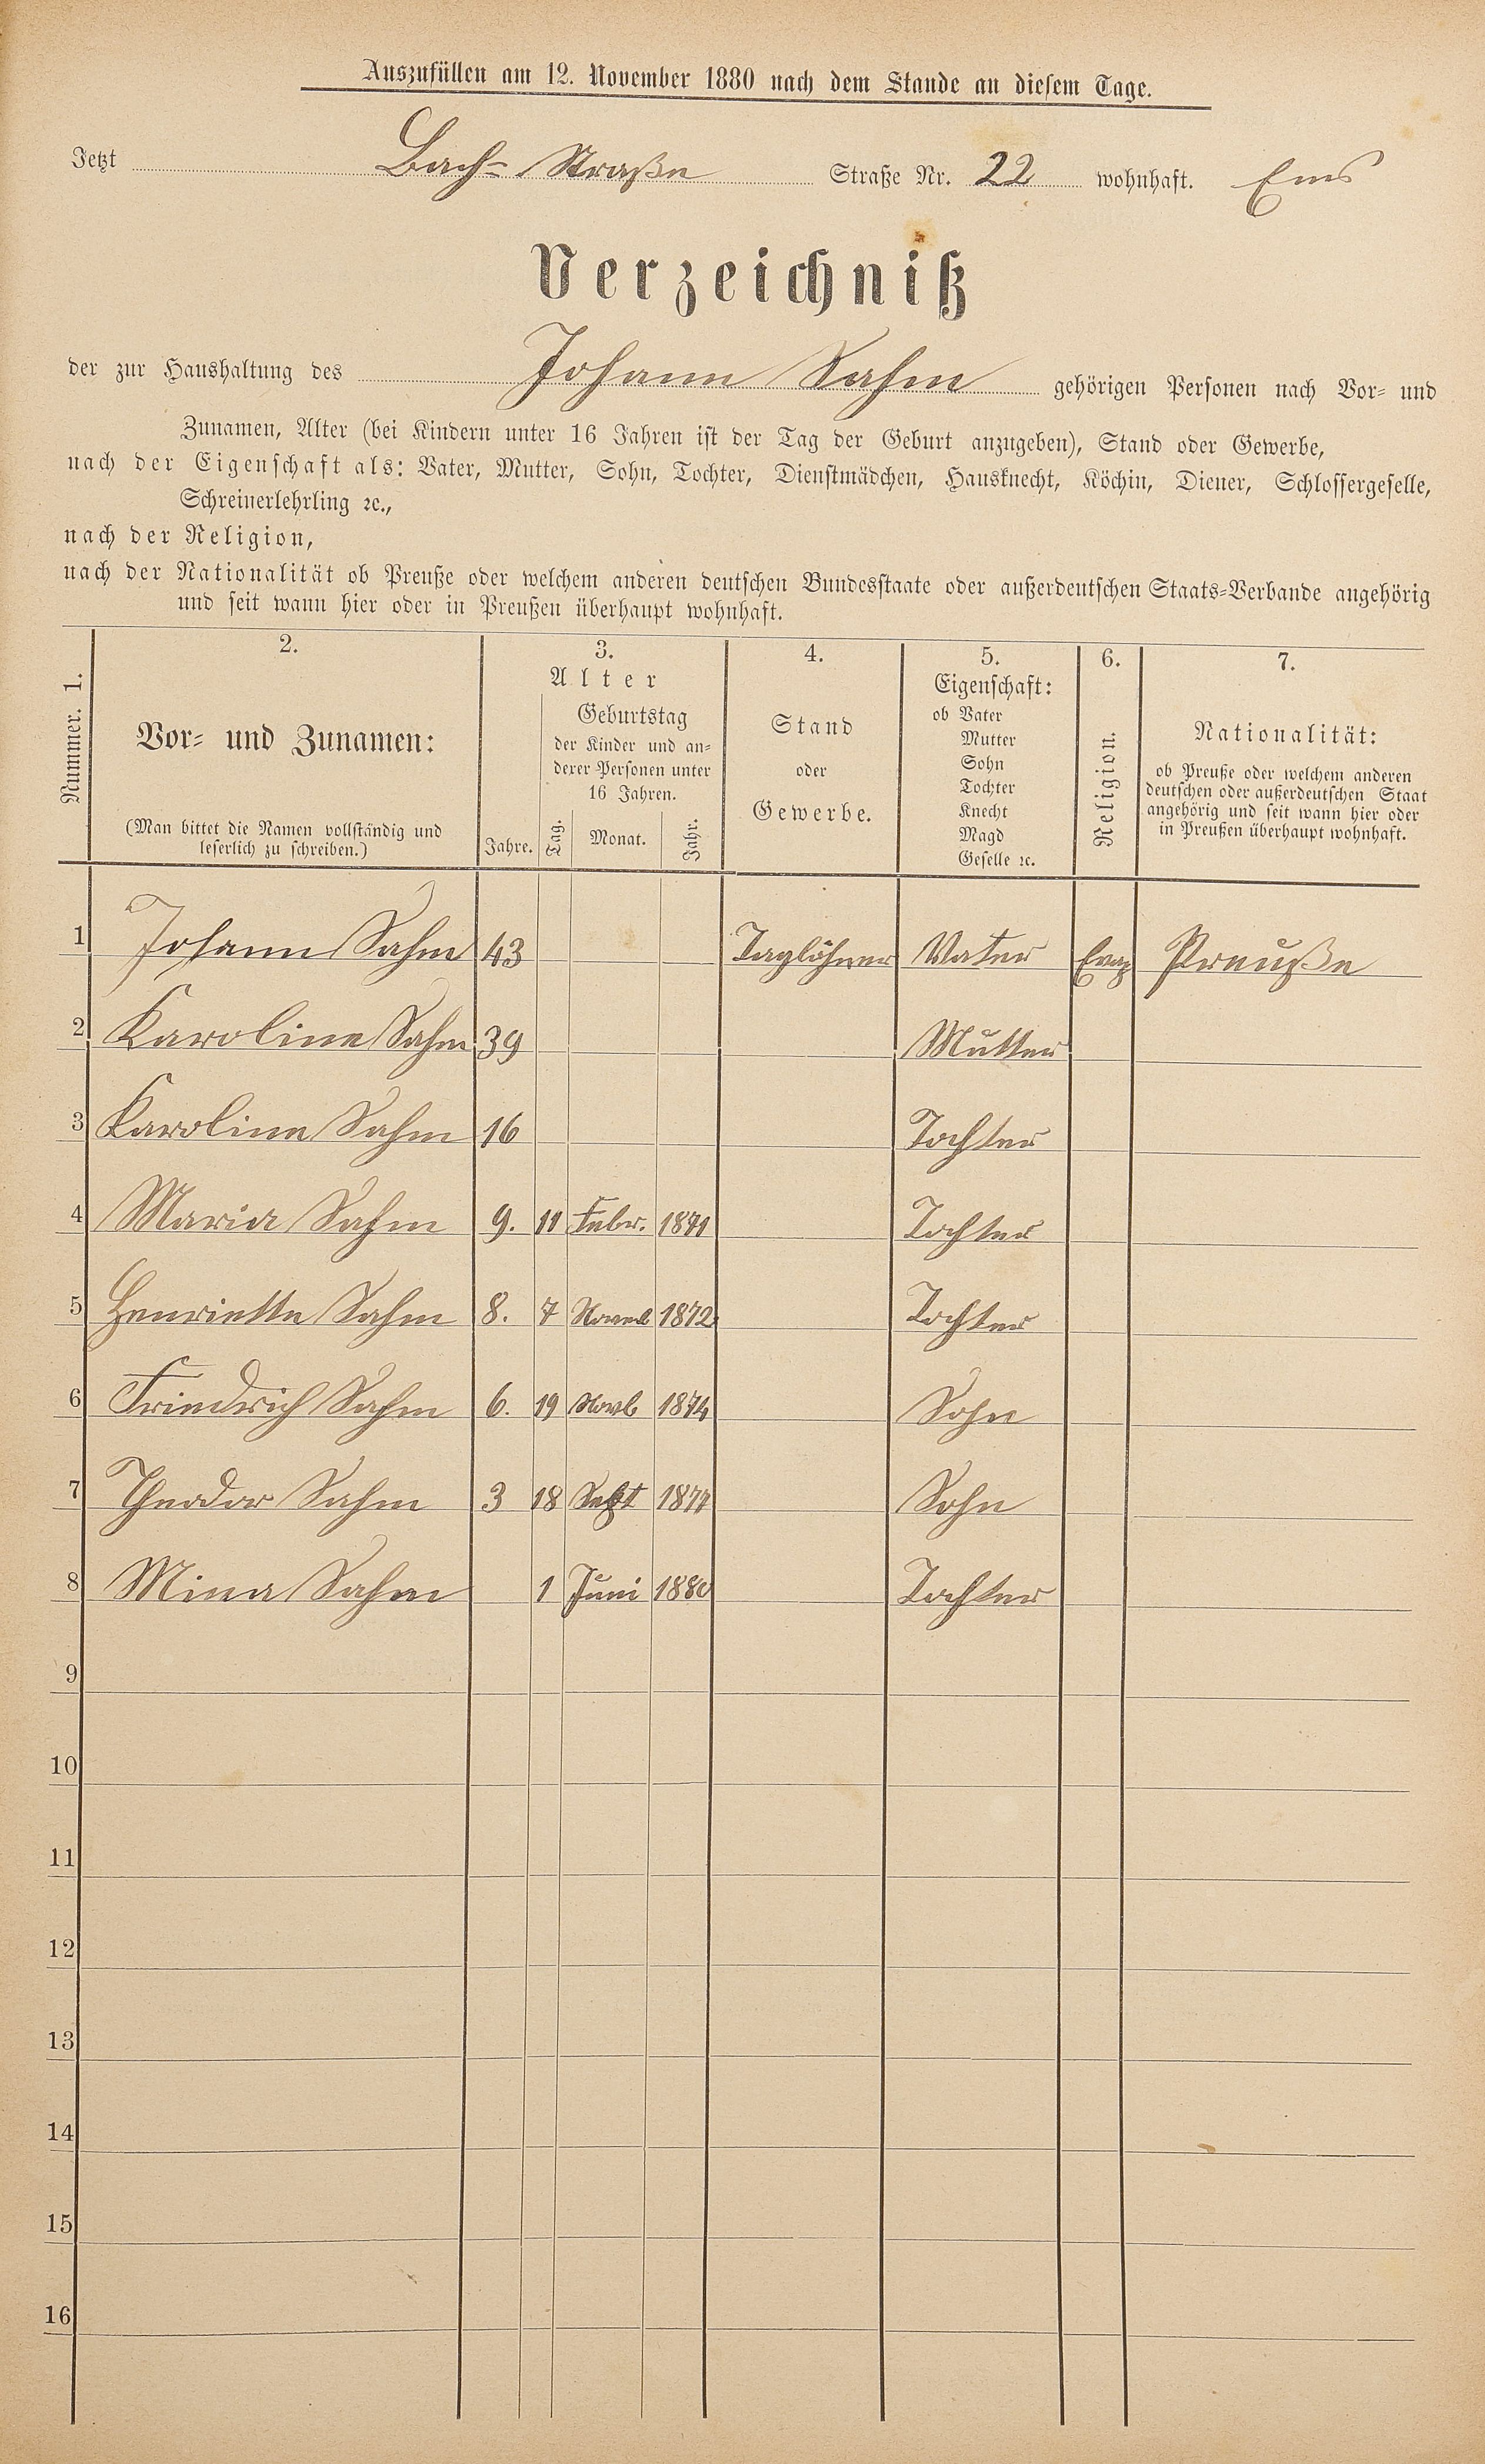 Auszufüllen am 12. November 1880 nach dem Stande an diesem Tage.
Jetzt Bach- Straße Straße Nr. 22 wohnhaft. Ems
Verzeichniß
der zur Haushaltung des Johann Sahm gehörigen Personen nach Vor- und
Zunamen, Alter (bei Kindern unter 16 Jahren ist der Tag der Geburt anzugeben), Stand oder Gewerbe,
nach der Eigenschaft als: Vater, Mutter, Sohn, Tochter, Dienstmädchen, Hausknecht, Köchin, Diener, Schlossergeselle,
Schreinerlehrling ꝛc.,
nach der Religion,
nach der Nationalität ob Preuße oder welchem anderen deutschen Bundesstaate oder außerdeutschen Staats-Verbande angehörig
und seit wann hier oder in Preußen überhaupt wohnhaft.
Nummer. 1.
2.
Vor- und Zunamen:
(Man bittet die Namen vollständig und
leserlich zu schreiben.)
3.
Alter
Geburtstag
der Kinder und an-
derer Personen unter
16 Jahren.
Jahre. Tag. Monat. Jahr.
4.
Stand
oder
Gewerbe.
5.
Eigenschaft:
ob Vater
Mutter
Sohn
Tochter
Knecht
Magd
Geselle ꝛc.
6.
Religion.
7.
Nationalität:
ob Preuße oder welchem anderen
deutschen oder außerdeutschen Staat
angehörig und seit wann hier oder
in Preußen überhaupt wohnhaft.
1 Johann Sahm 43 Taglöhner Vater Evag Preuße
2 Karoline Sahm 39 Mutter
3 Karoline Sahm 16 Tochter
4 Maria Sahm 9. 11 Febr. 1871 Tochter
5 Henriette Sahm 8. 7 Novb 1872 Tochter
6 Friedrich Sahm 6. 19 Novb 1874 Sohn
7 Theodor Sahm 3 18 Sept 1877 Sohn
8 Mina Sahm 1 Juni 1880 Tochter
9
10
11
12
13
14
15
16